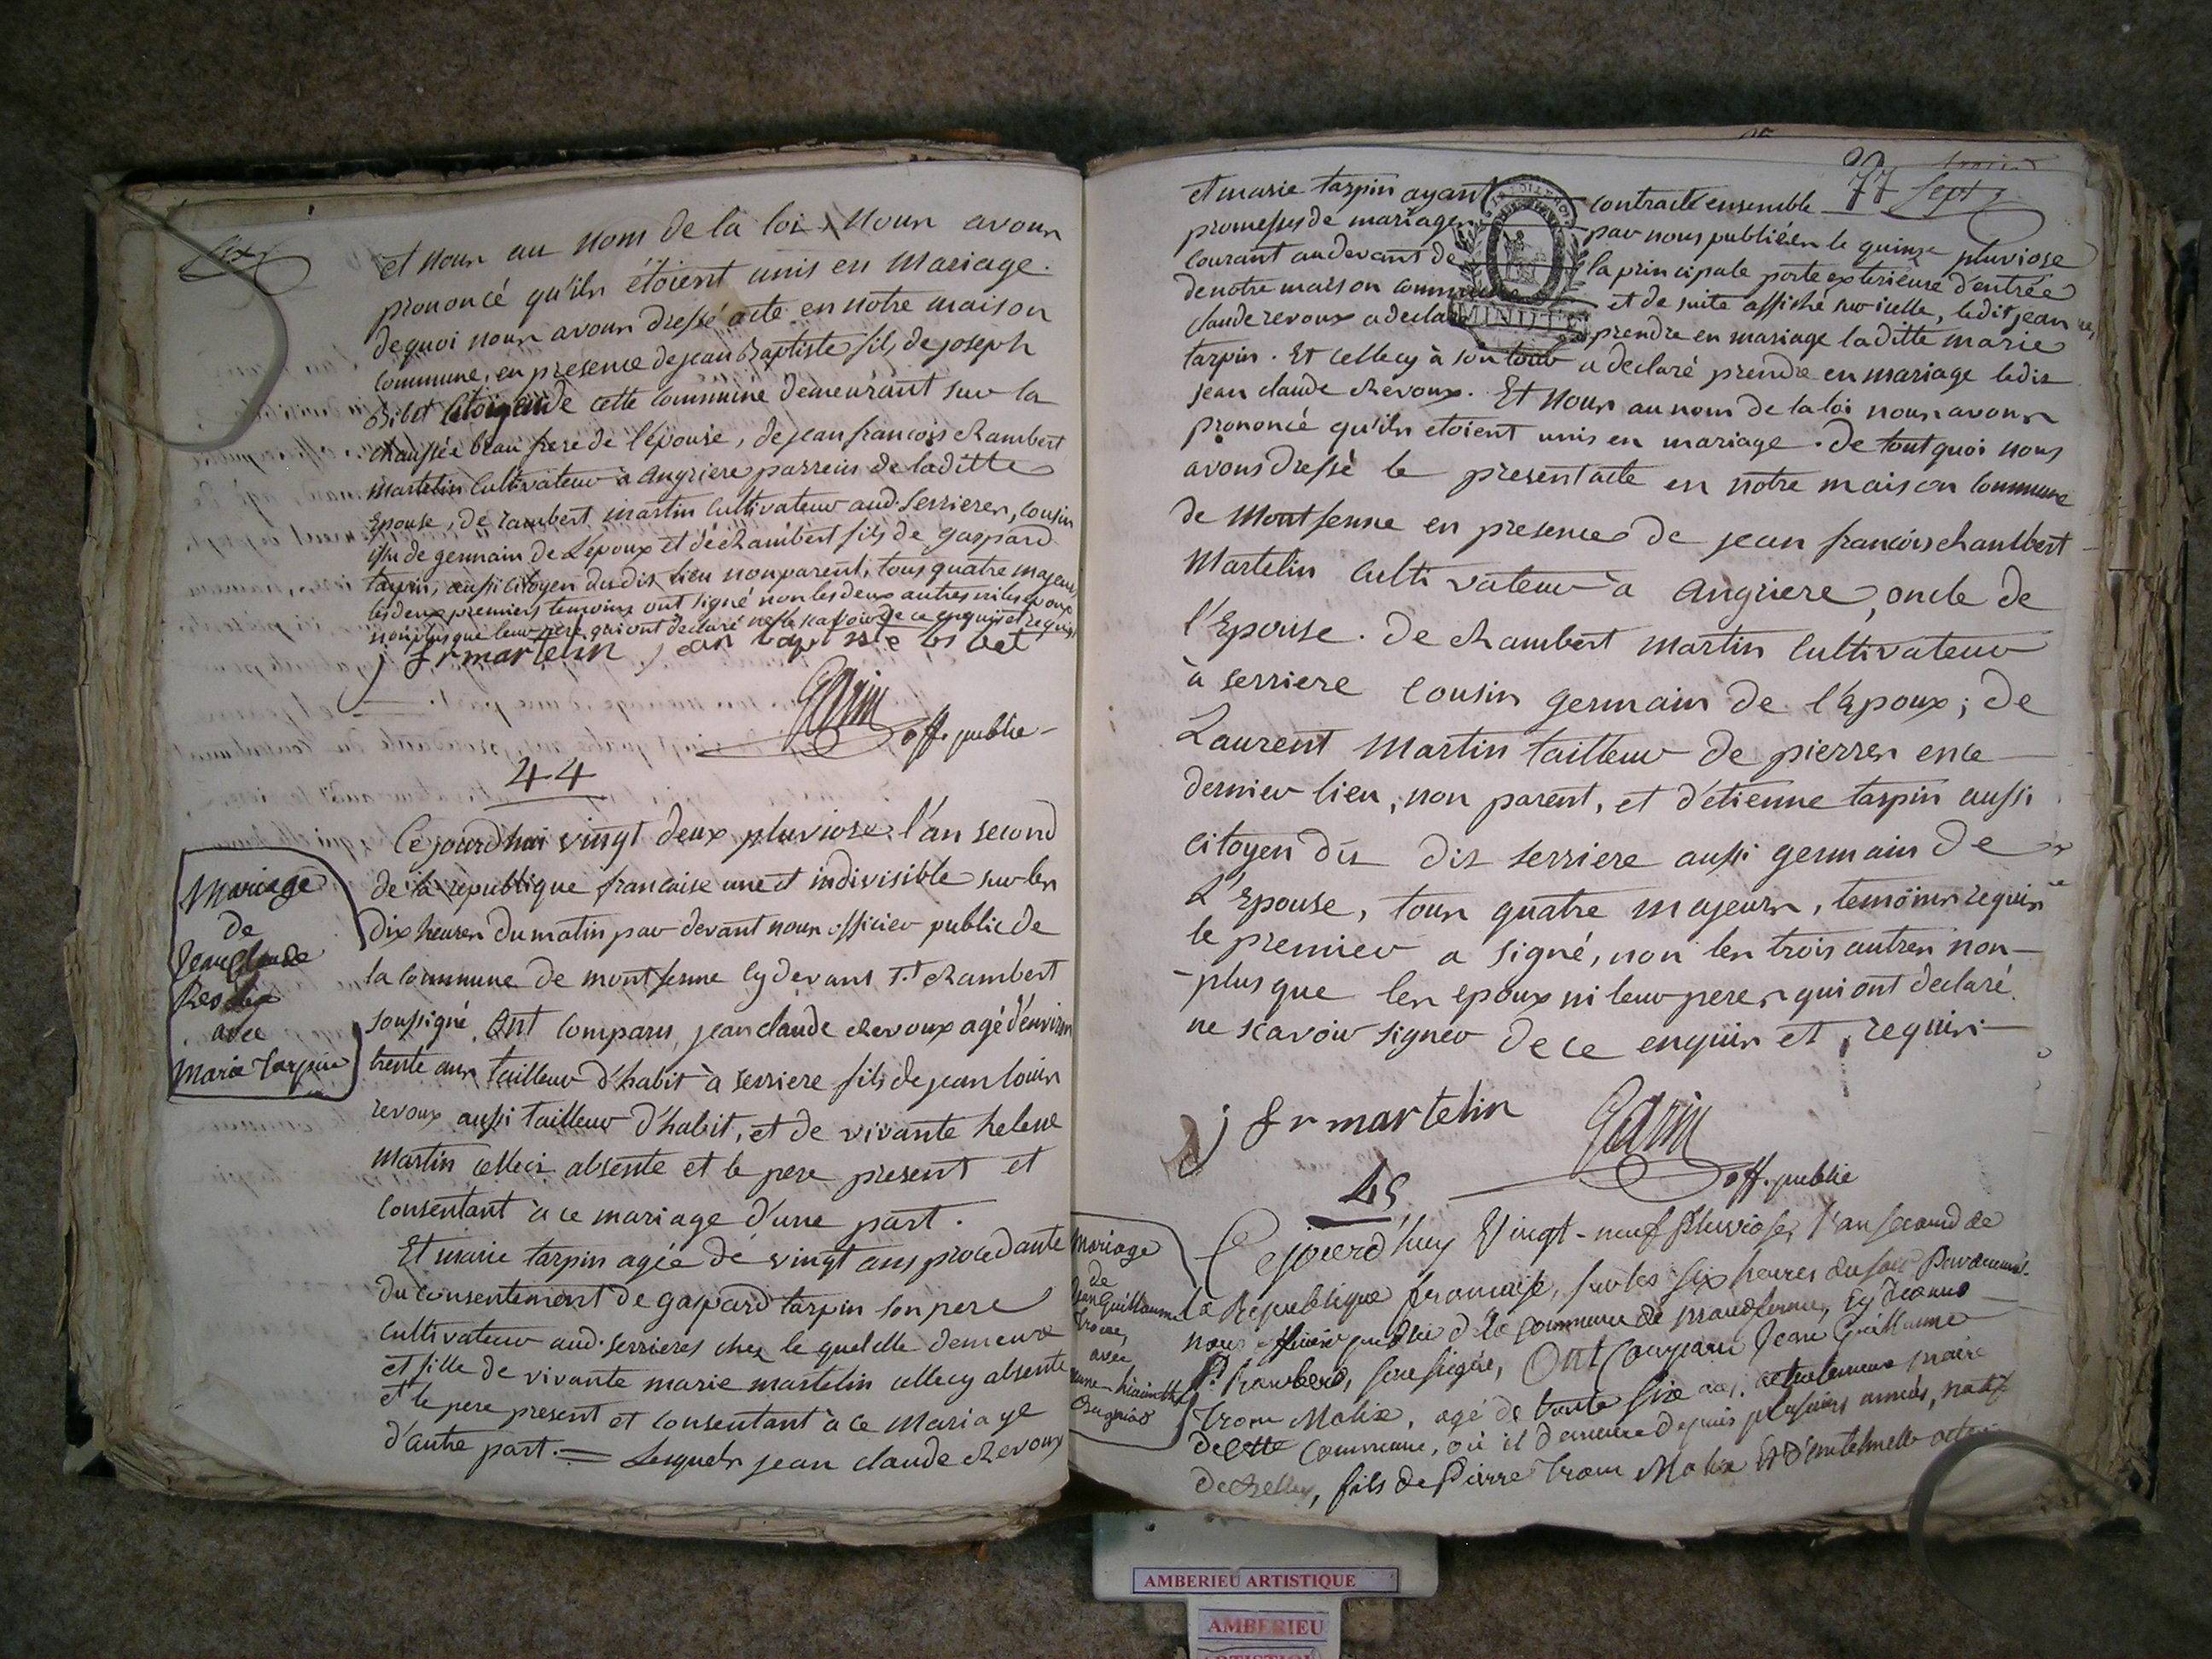 six
et nous au nom de la loi, nous avons
prononcé qu'ils étoient unis en mariage.
de quoi nous avons dressé acte en notre maison
commune, en presence de jean Baptiste fils de joseph
Bibet citoyen de cette commune demeurant sur la
chaussée beau frere de l'épouse, de jean francois chambert
martelin cultivateur à Angriere parrein de laditte
Epouse, de rambert martin cultivateur aud. Serrieres, cousin
issu de germain de l'époux et de chambert fils de gaspard
tarpin, aussi citoyen dudit lieu non parent, tous quatre majeurs
les deux premiers temoins ont signé non les deux autres ni les epoux
non plus que leur pere qui ont declaré ne le scavoir de ce enquis et requis
j fr martelin jean baptiste bibet
Garin
off. public
44
Mariage
de
Jean Claude
Revoux
avec
Marie Tarpin
Cejourd'hui vingt deux pluviose l'an second
de la republique francaise une et indivisible sur les
dix heures du matin par devant nous officier public de
la commune de montferme cy devant St. chambert
soussigné, Ont comparu, jean claude revoux agé d'environ
trente ans tailleur d'habit à serriere fils de jean louis
revoux aussi tailleur d'habit, et de vivante helene
martin celleci absente et le pere present et
consentant à ce mariage d'une part.
Et marie tarpin agée de vingt ans procedante
du consentement de gaspard tarpin son pere
cultivateur aud. serrieres chez lequel elle demeure
et fille de vivante marie martelin cellecy absente
et le pere present et consentant à ce mariage
d'autre part. = Lesquels jean claude revoux
77 sept
et marie tarpin ayant contracté ensemble
promesses de mariage par nous publiées le quinze pluviose
courant au devant de la principale porte exterieure d'entrée
de notre maison commune et de suite affiché sur icelle, ledit jean
claude revoux a declaré prendre en mariage laditte marie
MINUTE
tarpin. Et cellecy à son tour a declaré prendre en mariage ledit
jean claude revoux. Et nous au nom de la loi nous avons
prononcé qu'ils etoient unis en mariage. de tout quoi nous
avons dressé le present acte en notre maison commune
de Montferme en presence de jean francois chambert
Martelin cultivateur à Angriere, oncle de
l'Epouse. de chambert martin cultivateur
à serriere cousin germain de l'époux; de
Laurent Martin tailleur de pierres en ce
dernier lieu, non parent, et d'étienne tarpin aussi
citoyen du dit serriere aussi germain de
L'Epouse, tous quatre majeurs, temoins requis
le premier a signé, non les trois autres non
plus que les epoux ni leur peres qui ont declaré
ne scavoir signer de ce enquis et requis
j fr martelin Garin
off. public
45
mariage
de
Jean Guillaume
avec
Cejourd'huy Vingt-neuf Pluviose, l'an second de
la Republique francaise, sur les six heures du soir Pardevant
nous officier public de la commune de montferme, cy devant
St. Rambert, soussigné, Ont Comparu Jean Guillaume
Trom Molix, agé de trente six ans, actuellement maire
de cette commune, où il demeure depuis plusieurs années, natif
fils de Pierre Trom Molix
AMBERIEU ARTISTIQUE
AMBERIEU
ARTISTIQUE